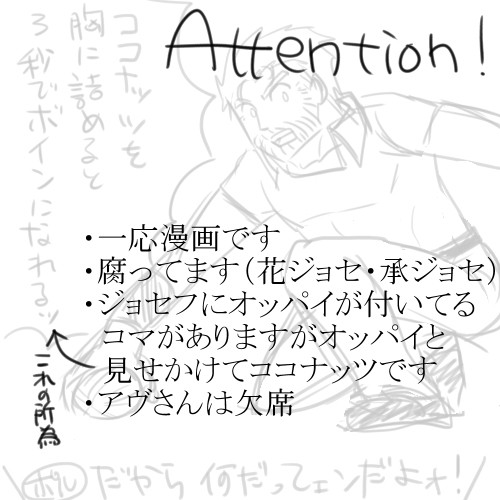 Attention!
ココナッツを
胸に詰めると
3秒でボインになれるッ
・一応漫画です
・腐ってます(花ジョセ・承ジョセ)
・ジョセフにオッパイが付いてる
コマがありますがオッパイと
見せかけてココナッツです
・アヴさんは欠席
これの所為
ポル だから何だってェンだよォ!